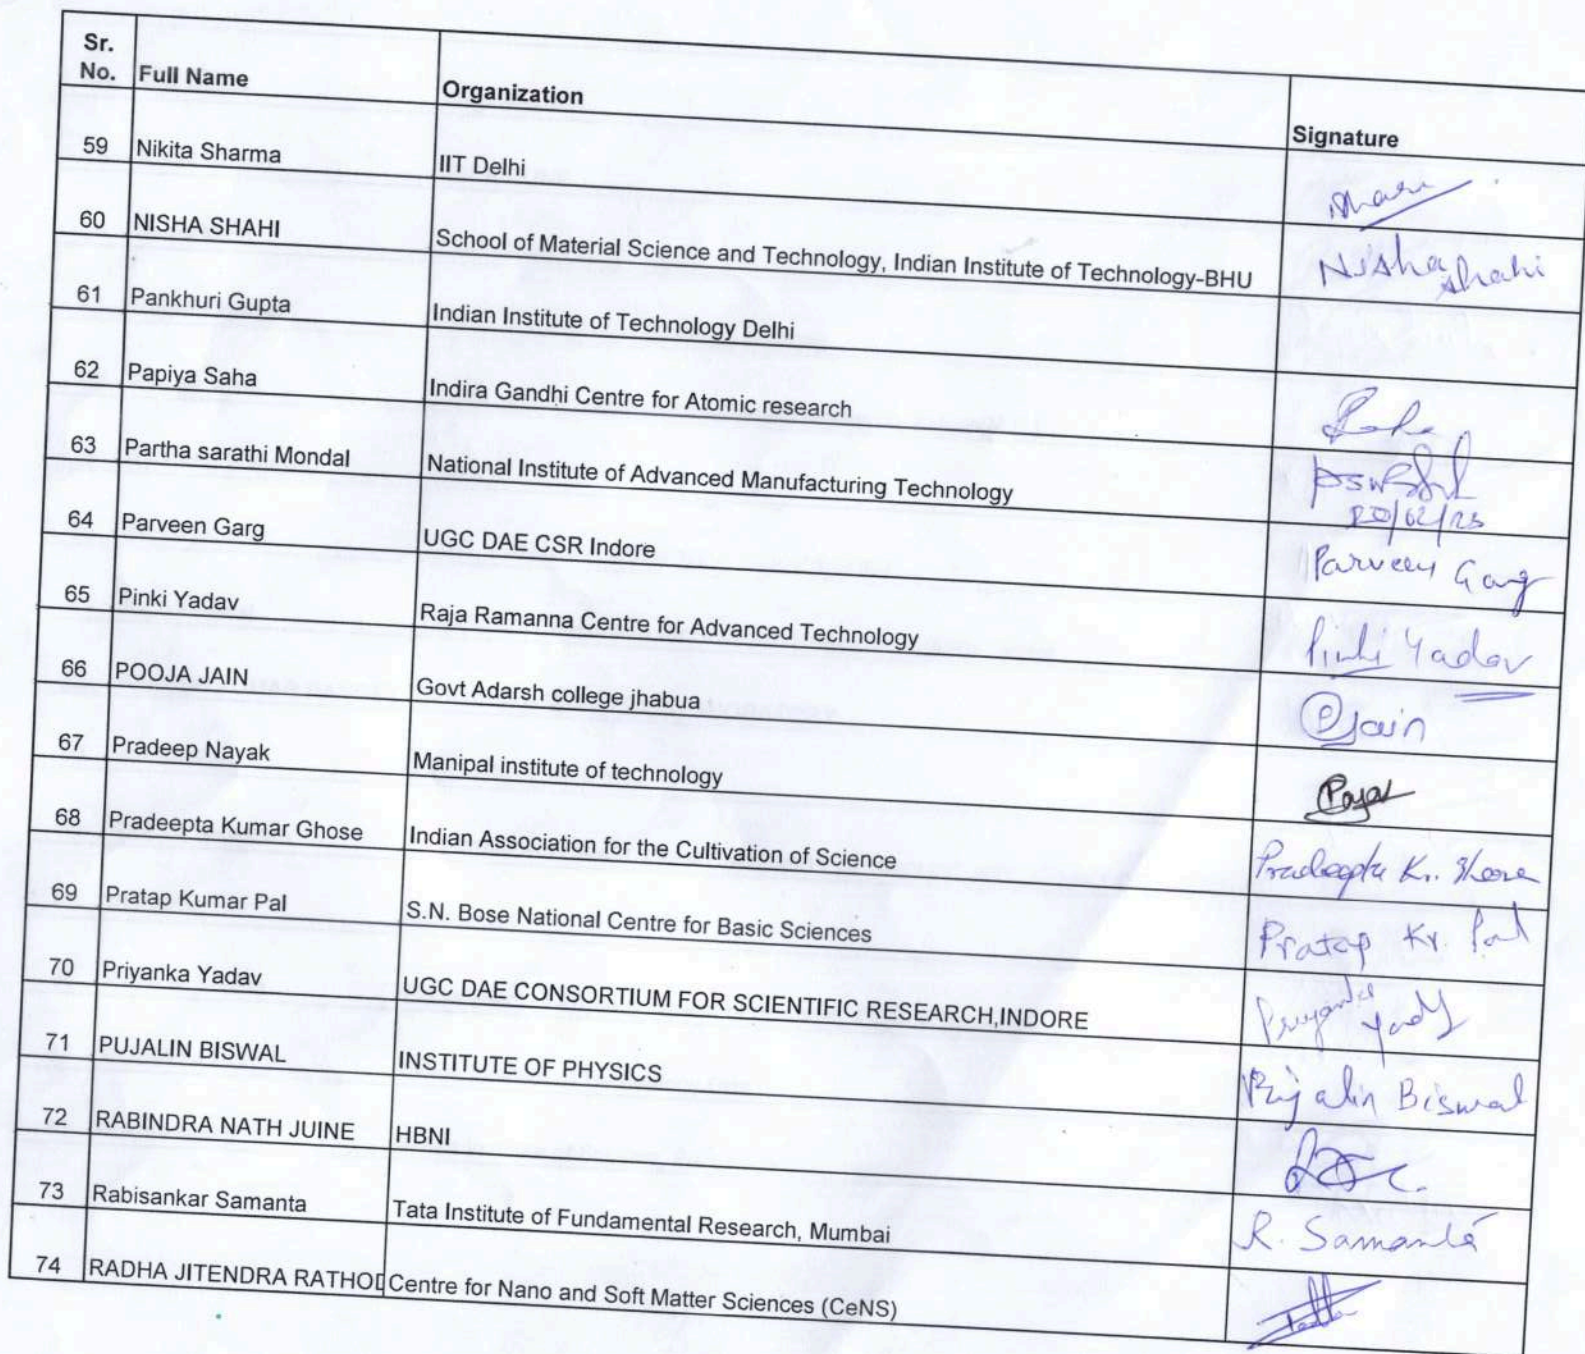 Sr. No. Full Name Organization Signature
59 Nikita Sharma IIT Delhi
60 NISHA SHAHI School of Material Science and Technology, Indian Institute of Technology-BHU Nisha Shahi
61 Pankhuri Gupta Indian Institute of Technology Delhi
62 Papiya Saha Indira Gandhi Centre for Atomic research
63 Partha sarathi Mondal National Institute of Advanced Manufacturing Technology
64 Parveen Garg UGC DAE CSR Indore Parveen Garg
65 Pinki Yadav Raja Ramanna Centre for Advanced Technology Pinki Yadav
66 POOJA JAIN Govt Adarsh college jhabua PJain
67 Pradeep Nayak Manipal institute of technology
68 Pradeepta Kumar Ghose Indian Association for the Cultivation of Science Pradeepta Kr. Ghose
69 Pratap Kumar Pal S.N. Bose National Centre for Basic Sciences Pratap Kr. Pal
70 Priyanka Yadav UGC DAE CONSORTIUM FOR SCIENTIFIC RESEARCH,INDORE Priyanka Yadav
71 PUJALIN BISWAL INSTITUTE OF PHYSICS Pujalin Biswal
72 RABINDRA NATH JUINE HBNI
73 Rabisankar Samanta Tata Institute of Fundamental Research, Mumbai R. Samanta
74 RADHA JITENDRA RATHOD Centre for Nano and Soft Matter Sciences (CeNS)